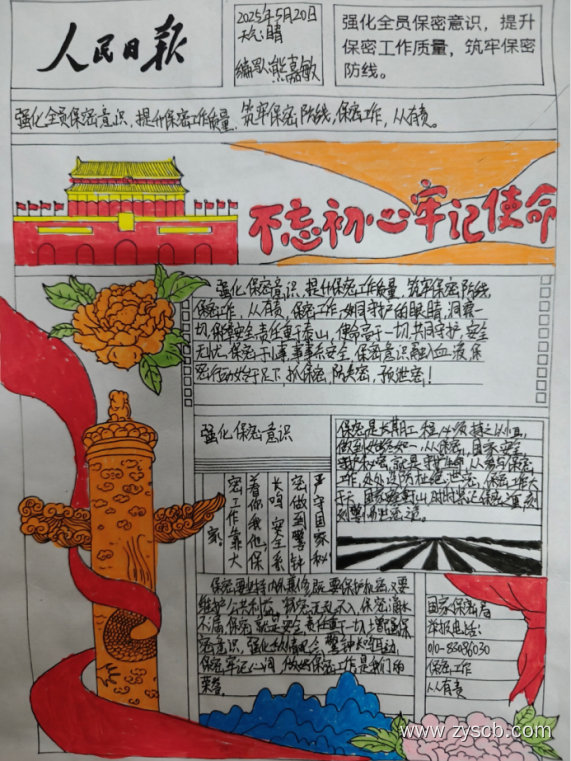 人民日报
2025年5月20日
天气:晴
编写人:熊嘉敏
强化全员保密意识，提升
保密工作质量，筑牢保密
防线。
强化全员保密意识、提升保密工作质量、筑牢保密防线,保密工作,人人有责。
不忘初心牢记使命
强化保密意识,提升保密工作质量,筑牢保密防线,
保密工作,人人有责,保密工作,如同守护的眼睛,洞察一
切,保障安全,责任重于泰山,使命高于一切,共同守护,安全
无忧,保密于心,事事系安全,保密意识融入血液,保
密行动始于足下,防泄密!
强化保密意识
严守国家秘
密,做到警钟
长鸣,安全系
着你我他,保
密工作靠大
家。
保密是长期工程,必须持之以恒,
做到始终如一,人人保密,国家安全
守护秘密,就是守护生命,人人参与保密
工作,处处设防杜绝泄密,保密工作大于
天
刻警惕防泄密。
保密要坚持内外兼修,既要保护机密,又要
维护公共利益
不漏,保密就是安全,责任重于一切,增强保
密意识,强化纵深观念,警钟长鸣
保密牢记心间,做好保密工作是我们的
荣誉。
国家保密局
举报电话:
010-83086030
保密工作
人人有责
www.zyscb.com